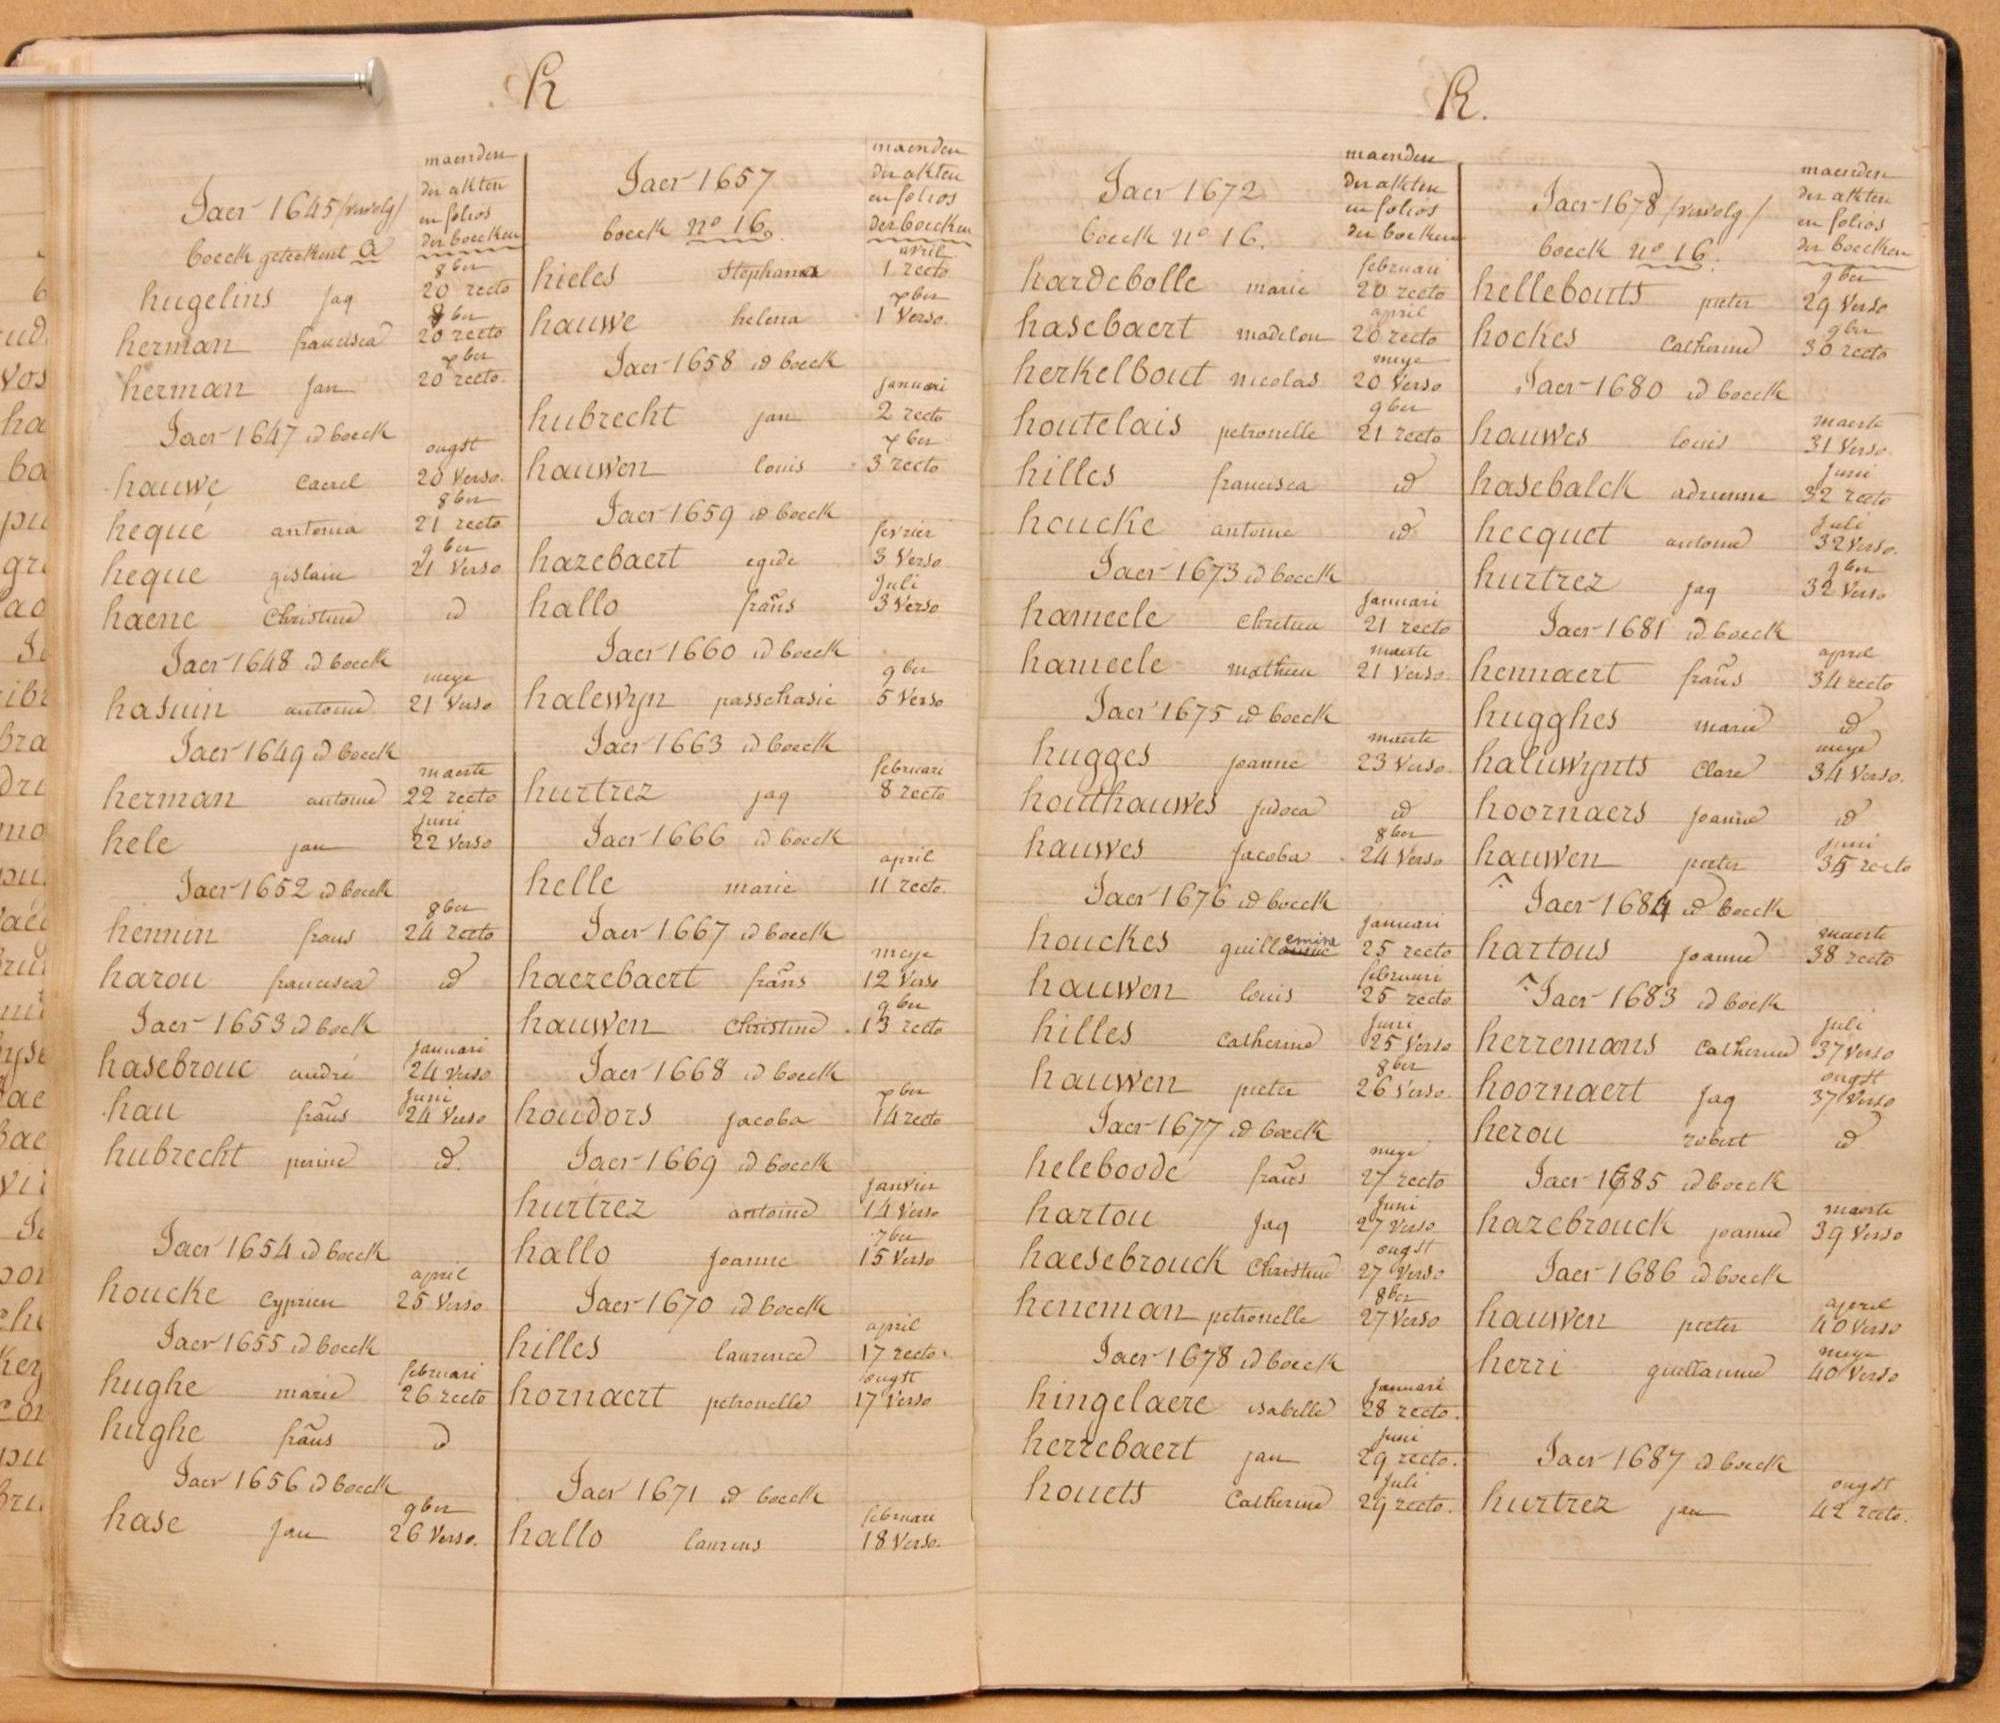 h
Jaer 1645 /vervolg/
boeck geteekent a
maenden
der akten
en folios
der boecken
8ber
hugelins jaq 20 recto
8ber
herman francisca 20 recto
7ber
herman jan 20 recto
Jaer 1647 id boeck
ougst
hauwe caerel 20 verso
8ber
heque antonia 21 recto
9ber
heque gislain 21 verso
haene christine id
Jaer 1648 id boeck
meye
hasuin antoine 21 verso
Jaer 1649 id boeck
maerte
herman antoine 22 recto
juni
hele jan 22 verso
Jaer 1652 id boeck
8ber
hennin frans 24 recto
harou francisca id
Jaer 1653 id boeck
januari
hasebrouc andré 24 verso
juni
hau frans 24 verso
hubrecht perine id
Jaer 1654 id boeck
april
houcke cyprien 25 verso
Jaer 1655 id boeck
februari
hughe marie 26 recto
hughe frans id
Jaer 1656 id boeck
9ber
hase jan 26 verso.
Jaer 1657
boeck no 16.
maenden
der akten
en folios
der boecken
avril
hieles stephana 1 recto
7ber
hauwe helena 1 verso
Jaer 1658 id boeck
januari
hubrecht jan 2 recto
7ber
hauwen louis 3 recto
Jaer 1659 id boeck
fevrier
hazebaert egide 3 verso
Juli
hallo frans 3 verso
Jaer 1660 id boeck
9ber
halewyn passchasie 5 verso
Jaer 1663 id boeck
februari
hurtrez jaq 8 recto
Jaer 1666 id boeck
april
helle marie 11 recto.
Jaer 1667 id boeck
meye
haezebaert frans 12 verso
9ber
hauwen christine 13 recto
Jaer 1668 id boeck
7ber
houdors jacoba 14 recto
Jaer 1669 id boeck
janvier
hurtrez antoine 14 verso
7ber
hallo joanne 15 verso
Jaer 1670 id boeck
april
hilles laurence 17 recto
ougst
hornaert petronelle 17 verso
Jaer 1671 id boeck
februari
hallo laurens 18 verso.
h.
Jaer 1672
boeck no 16.
maenden
der akten
en folios
der boecken
februari
hardebolle marie 20 recto
april
hasebaert madelon 20 recto
meye
herkelbout nicolas 20 verso
9ber
houtelais petronelle 21 recto
hilles francisca id
houcke antoine id
Jaer 1673 id boeck
januari
hameele chretien 21 recto
maerte
hameele mathieu 21 verso.
Jaer 1675 id boeck
maerte
hugges joanne 23 verso.
houthauwes judoca id
8ber
hauwes jacoba 24 verso
Jaer 1676 id boeck
januari
houckes guillemine 25 recto
februari
hauwen louis 25 recto
juni
hilles catherine 25 verso
8ber
hauwen pieter 26 verso.
Jaer 1677 id boeck
meye
heleboode frans 27 recto
juni
hartou jaq 27 verso
ougst
haesebrouck christine 27 verso
8ber
heneman petronelle 27 verso
Jaer 1678 id boeck
januari
hingelaere isabelle 28 recto.
juni
herrebaert jan 29 recto.
juli
houets catherine 29 recto.
Jaer 1678 /vervolg/
boeck no 16.
maenden
der akten
en folios
der boecken
9ber
hellebouts pieter 29 verso
9ber
hockes catherine 30 recto
Jaer 1680 id boeck
maerte
hauwes louis 31 verso
juni
hasebalck adrienne 32 recto
juli
hecquet antoine 32 verso.
9ber
hurtrez jaq 32 verso
Jaer 1681 id boeck
april
hennaert frans 34 recto
hugghes marie id
meye
haluwynts clare 34 verso.
hoornaers joanne id
juni
hauwen pieter 35 recto
Jaer 1684 id boeck
maerte
hartous joanne 38 recto
Jaer 1683 id boek
juli
herremans catherine 37 verso
ougst
hoornaert jaq 37 verso
herou robert id
Jaer 1685 id boeck
maerte
hazebrouck joanne 39 verso
Jaer 1686 id boeck
april
hauwen pieter 40 verso
meye
herri guillaume 40 verso
Jaer 1687 id boeck
ougst
hurtrez jan 42 recto.